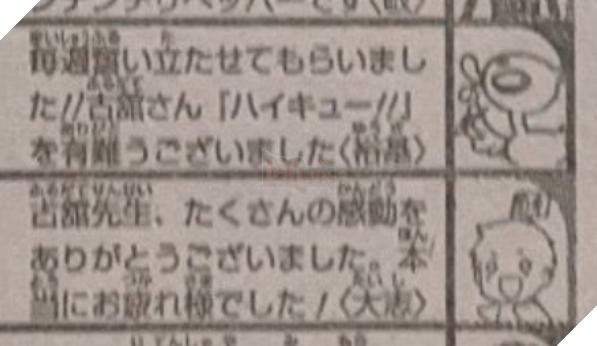 毎週奮い立たせてもらいまし
た!!古舘さん『ハイキュー!!』
を有難うございました〈裕基〉
古舘先生、たくさんの感動を
ありがとうございました。本
当にお疲れ様でした!〈大志〉